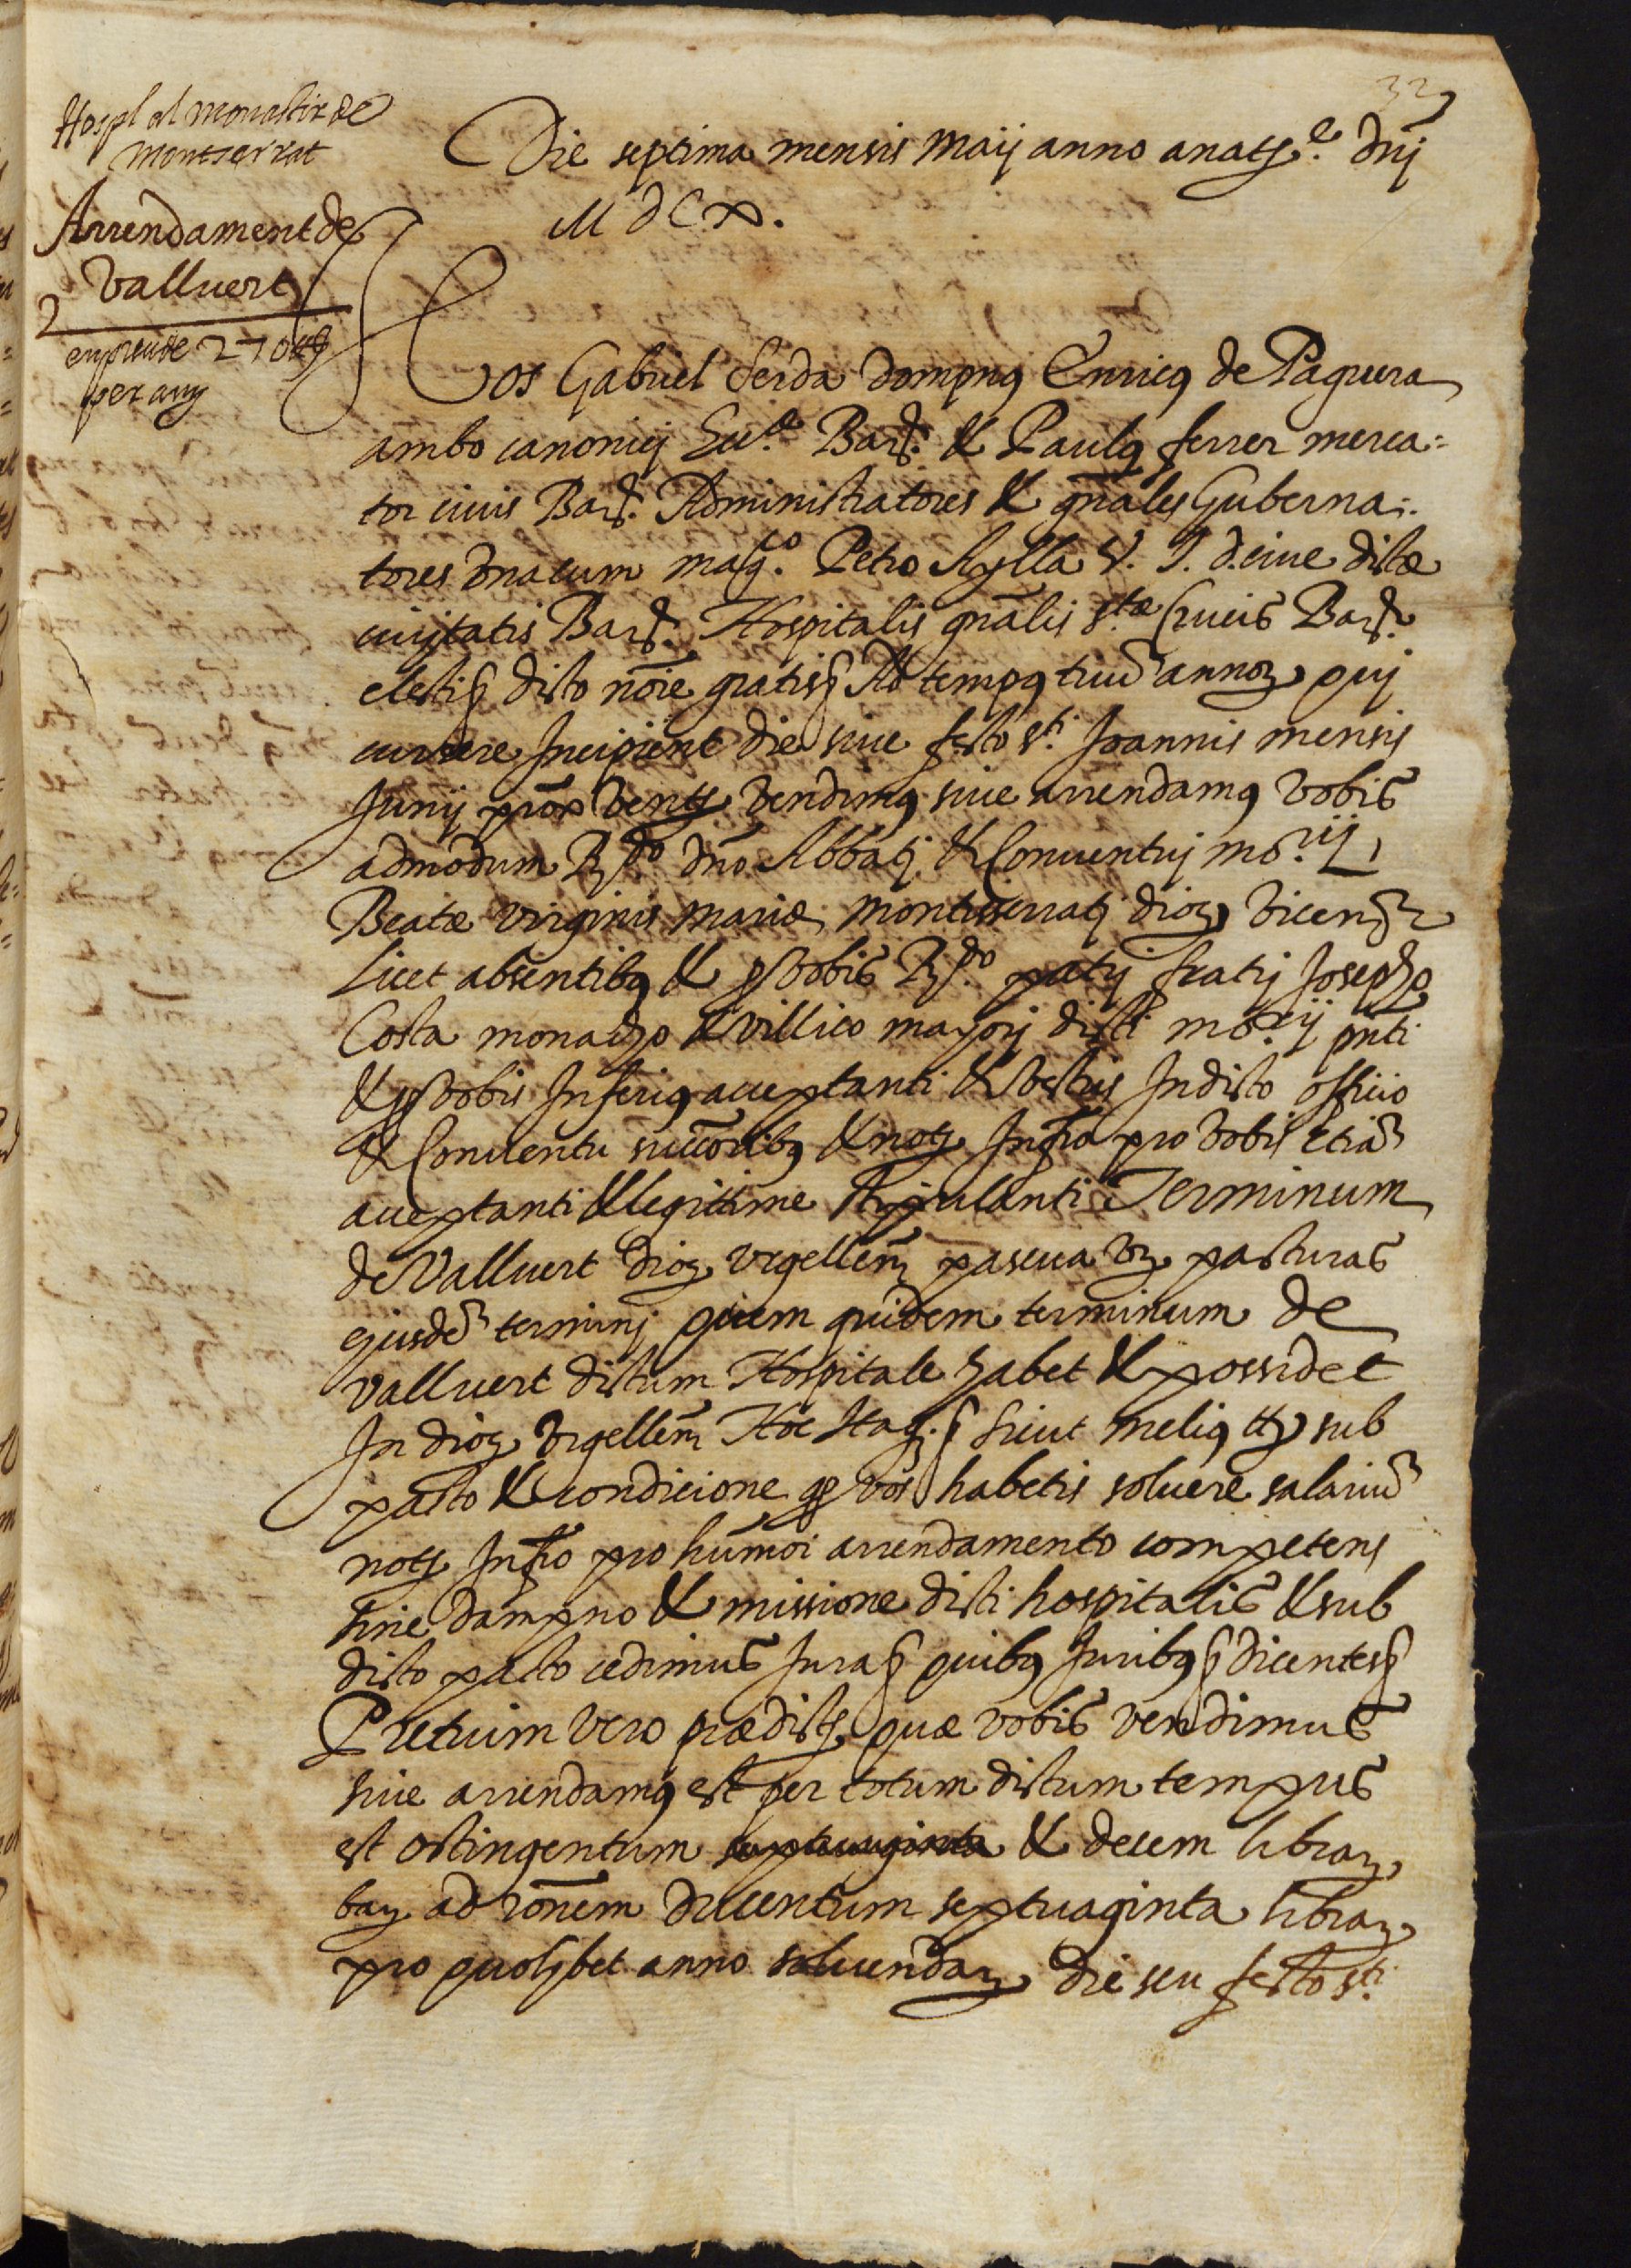 32
Hospl al monastir de
Montserrat
Arrendament de
Vallvert
2
en preu de 270 ll
per any
Die septima mensis Maij anno a natte. Dnj
M d C x.
Nos Gabriel Serda dompnus Enricus de Paguera
ambo canonicj Barĉ. & Paulus ferrer merca=
tor civis Barĉ. Administratores & gnãles Guberna=
tores una cum magco. Petro Aylla V. J. d. cive dictæ
civitatis Barĉ. Hospitalis gnãlis stæ Crucis Barĉ.
dicto noĩe gratis Ad tempus triũ annorꝫ quj
currere Incipient die sive festo sti. Joannis mensis
Junij prõx vents vendimus sive arrendamus vobis
admodum Rdo. dño Abbatj & Conventuj mõ.rij
Beatæ Virginis mariæ Montisserratj diocꝫ Vicenꝫ
Licet absentibus & vobis Rdo. patrj fratrj Josepho
Costa monacho & villico majorj dicti mõ.rij pnti
& vobis Inferius acceptanti & vestris In dicto officio
& Conventu succõribus & notꝫ Infro pro vobis etiã
acceptanti & legittime stipulanti Terminum
de Vallvert diocꝫ Urgelleñ pascua vꝫ pasturas
ejusdẽ terminj quem quidem terminum de
Vallvert dictum Hospitale habet & possidet
In diocꝫ Urgelleñ Hoc Itaqꝫ. Sicut melius ttꝫ sub
pacto & condicione qꝫ vos habetis solvere salariũ
notꝫ Infro pro humõi arrendamento competens
sine dampno & missione dicti hospitalis & sub
dicto pacto cedimus Jura quibus Juribus dicentes
Pretium vero prædictꝫ quæ vobis vendimus
sive arrendamus est per totum dictum tempus
est octingentum septuaginta & decem librarꝫ
barꝫ ad rõnem ducentum septuaginta librarꝫ
pro quolibet anno solvendarꝫ die seu festo sti.